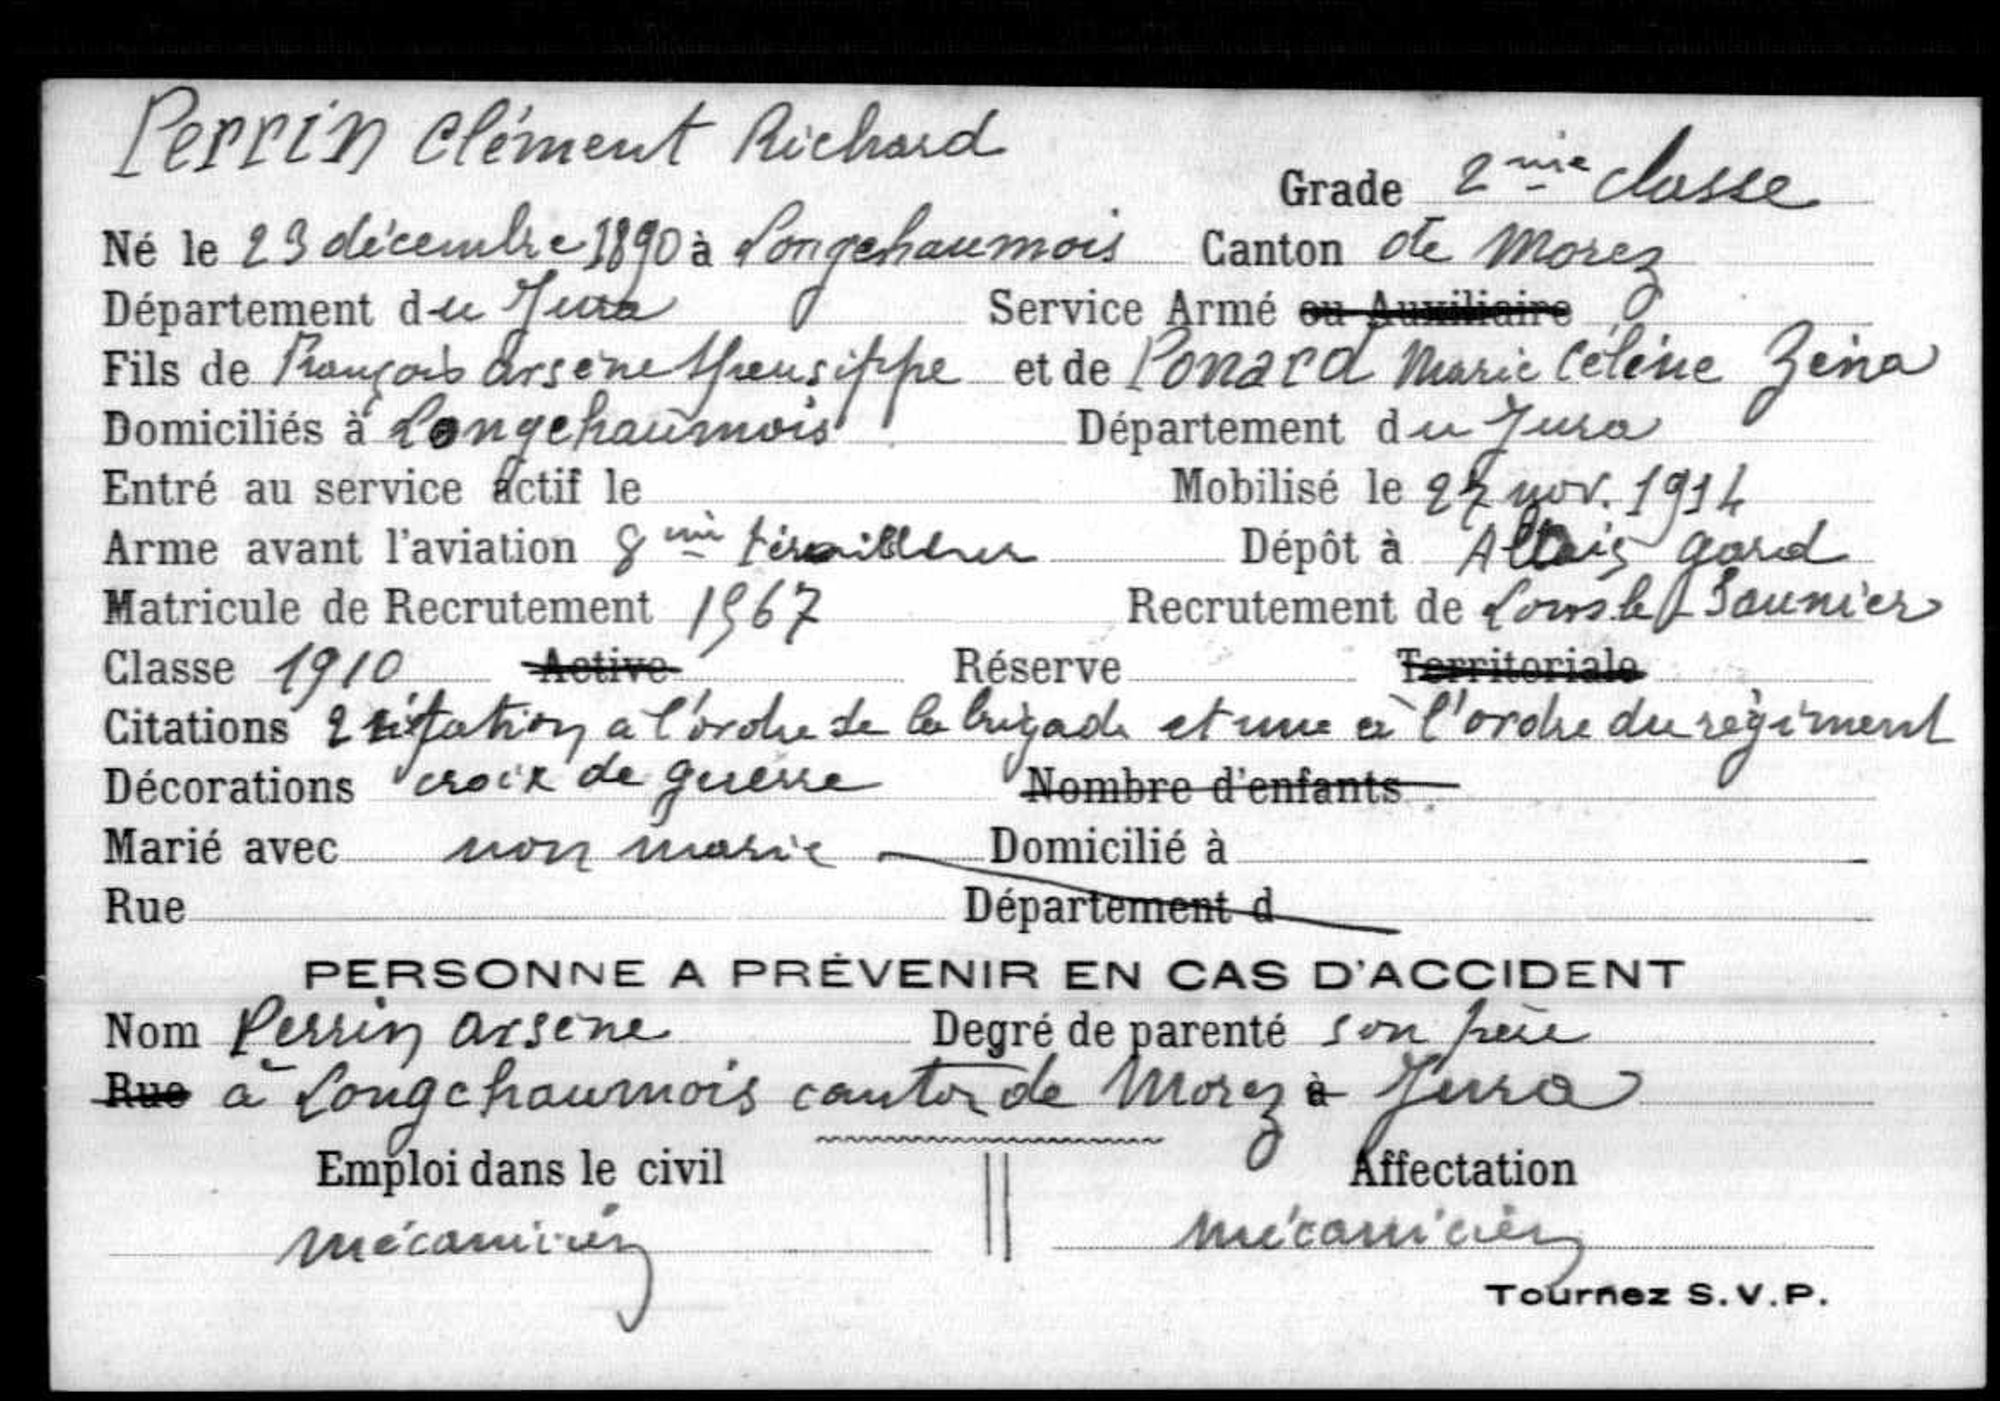 Perrin Clément Richard
Grade 2mie classe
Né le 23 décembre 1890 à Longchaumois Canton de Morez
Département du Jura Service Armé ou Auxiliaire
Fils de François arsène Speusippe et de Ponard Marie Céléne Zéna
Domiciliés à Longchaumois Département du Jura
Entré au service actif le Mobilisé le 27 nov. 1914
Arme avant l'aviation 8me tirailleur Dépôt à Allais gard
Matricule de Recrutement 1967 Recrutement de Lons le Saunier
Classe 1910 Active Réserve Territoriale
Citations 2 citation a l'ordre de la brigade et une à l'ordre du régiment
Décorations croix de guerre Nombre d'enfants
Marié avec non marie Domicilié à
Rue Département d
PERSONNE A PRÉVENIR EN CAS D'ACCIDENT
Nom Perrin arsène Degré de parenté son père
Rue à Longchaumois canton de Morez à Jura
Emploi dans le civil Affectation
mécanicien mécanicien
Tournez S.V.P.